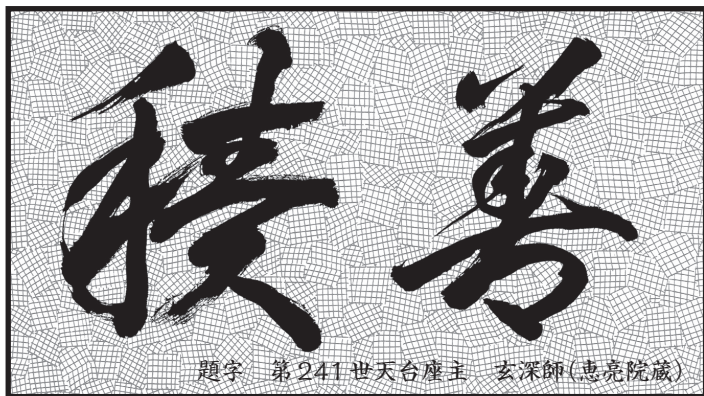 積善
題字　第241世天台座主　玄深師(恵亮院蔵)